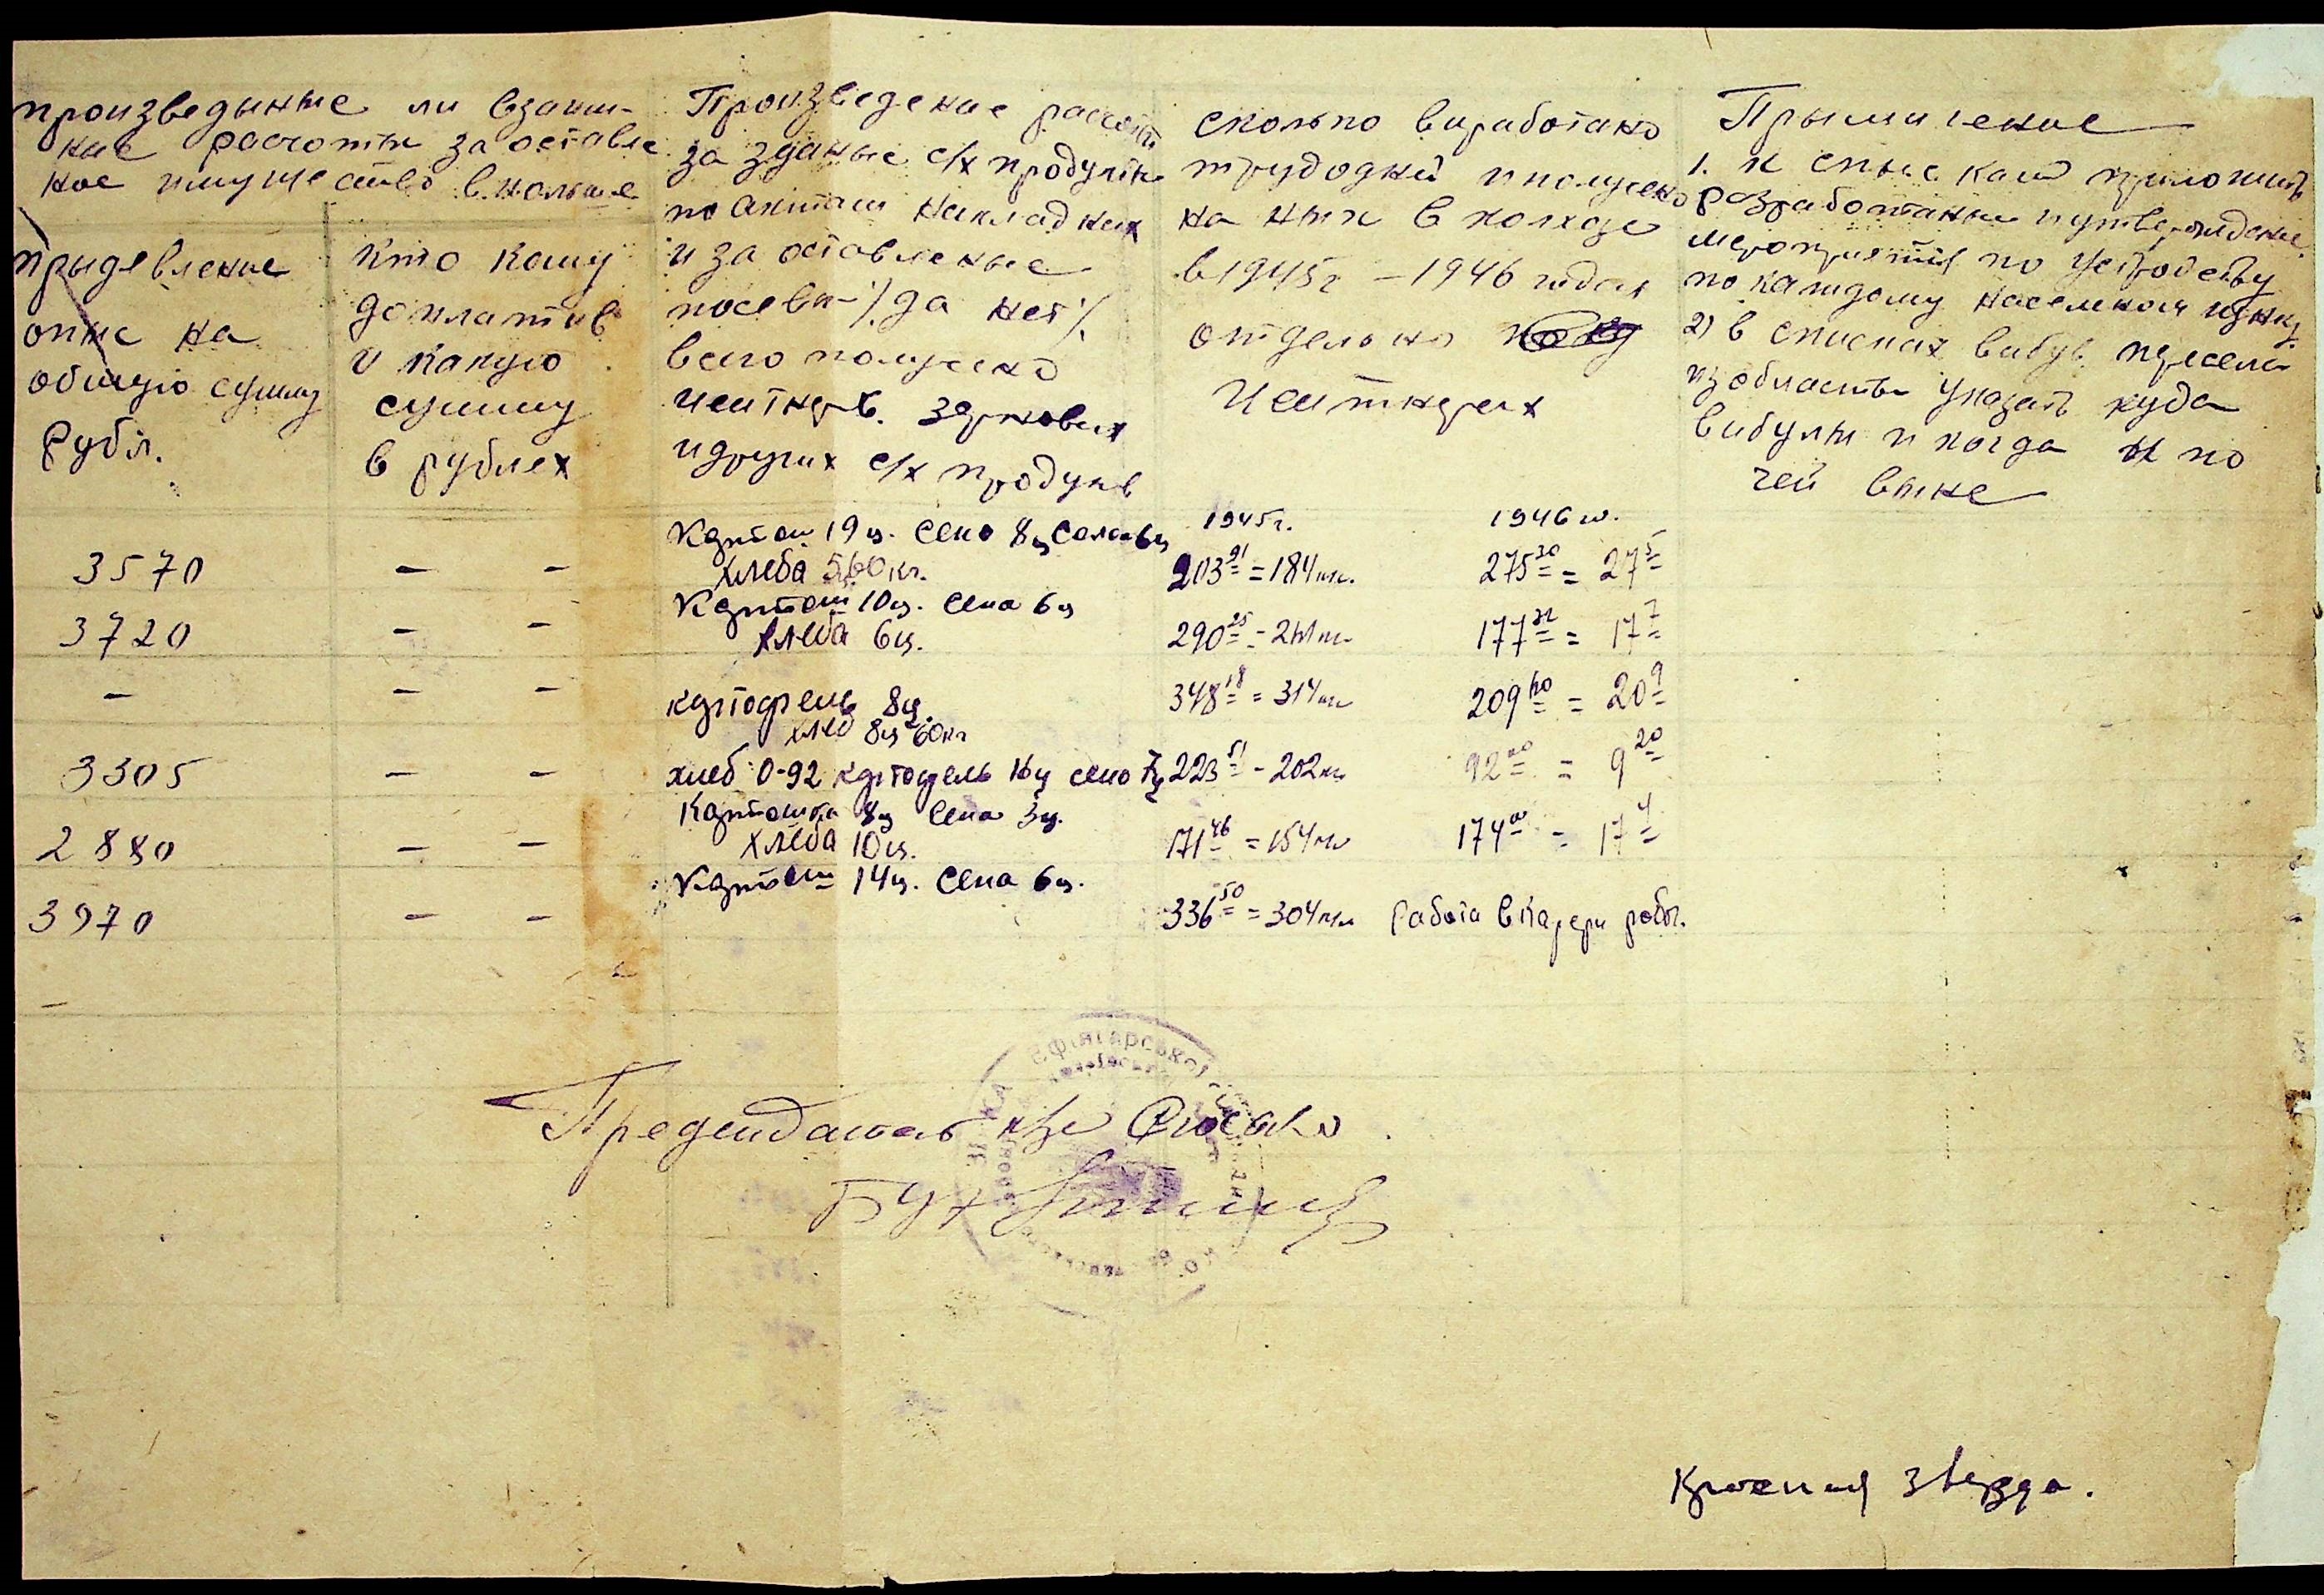 произведыные ли взаим-
ные расчоты за оставле
ное имущество в польше
придевление
опис на
общую сумму
Рубл.
кто кому
доплатив
и какую
сумму
в рублех
Произведение рассчоты
за зданые с/х продукты
по актам накладных
и за оставленые
посевы-/.да нет/.
всего получено
центнерв. зерновых
и других с/х продукв
сколько виработано
трудодней и получено
на них в колхозе
в 1945г - 1946 годах
отдельно
Центнерах
Прымичение
1. к спискам приложить
разработаные и утверждение
мероприятия по устройству
по каждому населеном пунку.
2) в списках вибув. пересел.
из области указать куда
вибули и когда и по
чей вине
1945г.
1946 г.
3570 — —
Картош 19 ц. Сено 8ц Солом 6ц
хлеба 560 кг.
203 91 = 184 кг.
275 30 = 27 5
3720 — —
Картош 10ц. Сена 6ц
хлеба 6ц.
290 25 - 261 кг
177 32 = 17 7
— — —
картофель 8ц.
хлеб 8ц 60кг
348 18 = 314 кг
209 40 = 20 9
3305 — —
хлеб 0-92 картофель 16ц сено 7ц
223 51 - 202 кг
92 00 = 9 20
2880 — —
Картошка 8ц Сена 3ц.
хлеба 10ц.
171 46 = 154 кг
174 00 = 17 4
3970 — —
Картош 14ц. Сена 6ц.
336 50 = 304 кг
Работа в Карери робоч.
—
Предсидатель к-зе
Бух
Красная звезда.